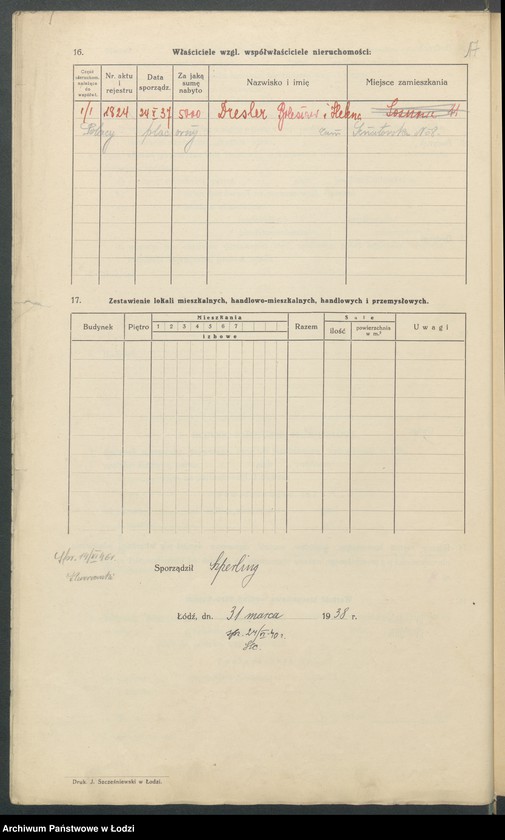 16. Właściciele wzgl. współwłaściciele nieruchomości:
Część nieruchom. należąca do współwł.
Nr. aktu i rejestru
Data sporządz.
Za jaką sumę nabyto
Nazwisko i imię
Miejsce zamieszkania
1/1 1824 24 I 37 5000 Dresler Bolesław i Helena
Polacy plac
zam.
17. Zestawienie lokali mieszkalnych, handlowo-mieszkalnych, handlowych i przemysłowych.
Budynek
Piętro
Mieszkania
1 2 3 4 5 6 7
izbowe
Razem
Sale
ilość
powierzchnia w m.²
Uwagi
Sporządził Szperling
Łódź, dn. 31 marca 1938 r.
Druk. J. Szcześniewski w Łodzi.
Archiwum Państwowe w Łodzi